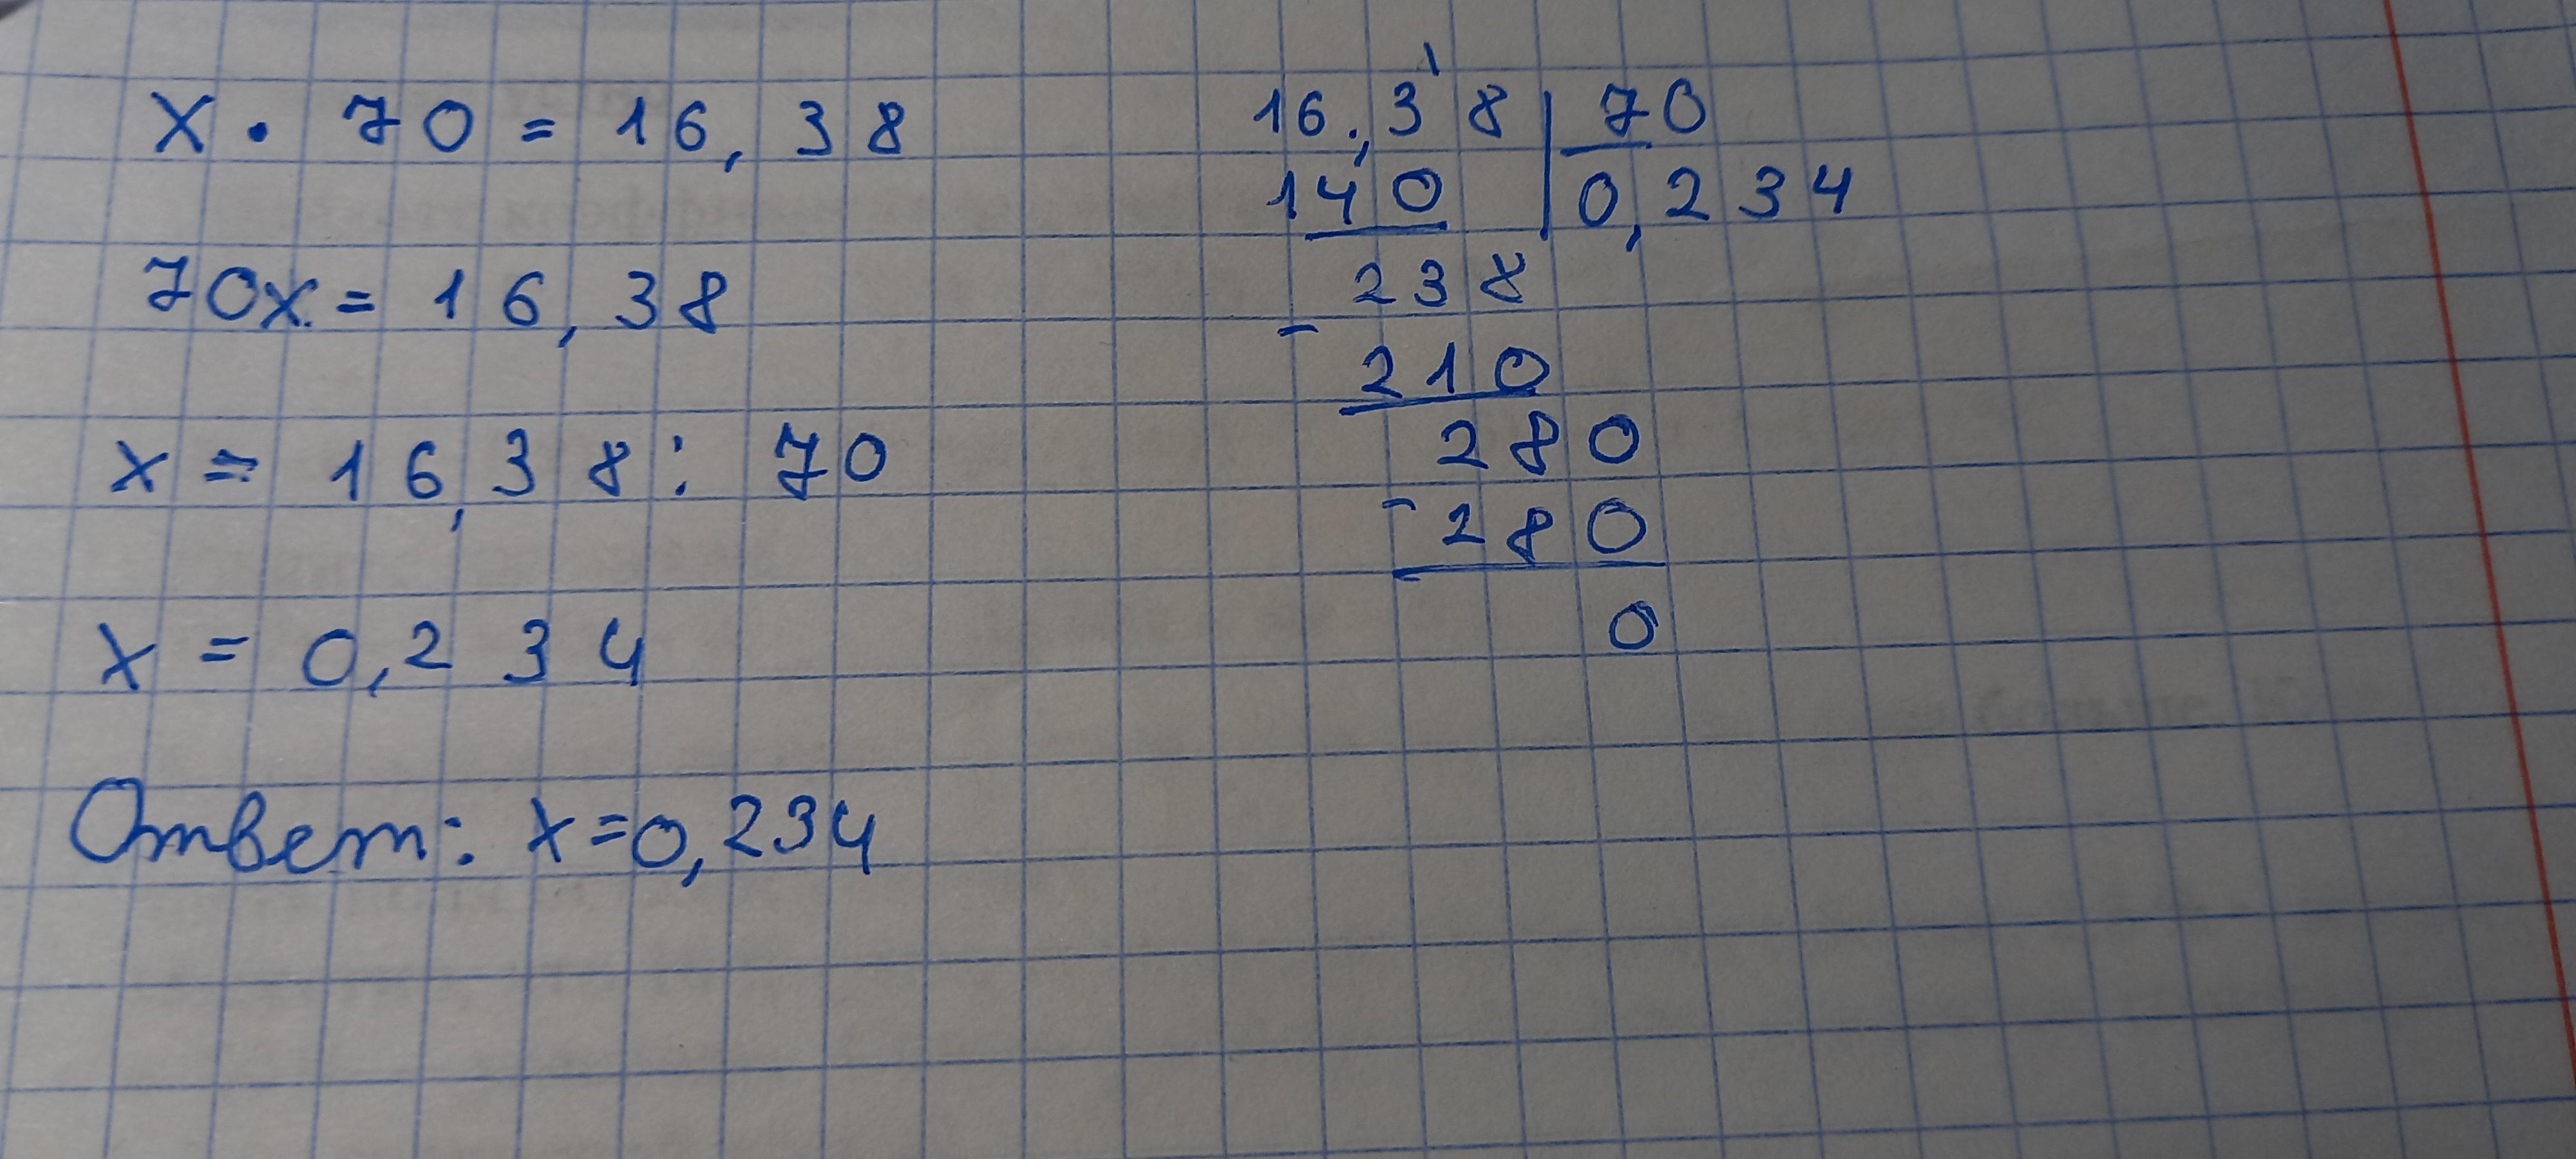 x · 70 = 16,38
70x = 16,38
x = 16,38 : 70
x = 0,234
Ответ: x=0,234
16,38 | 70
140 | 0,234
238
- 210
280
- 280
0